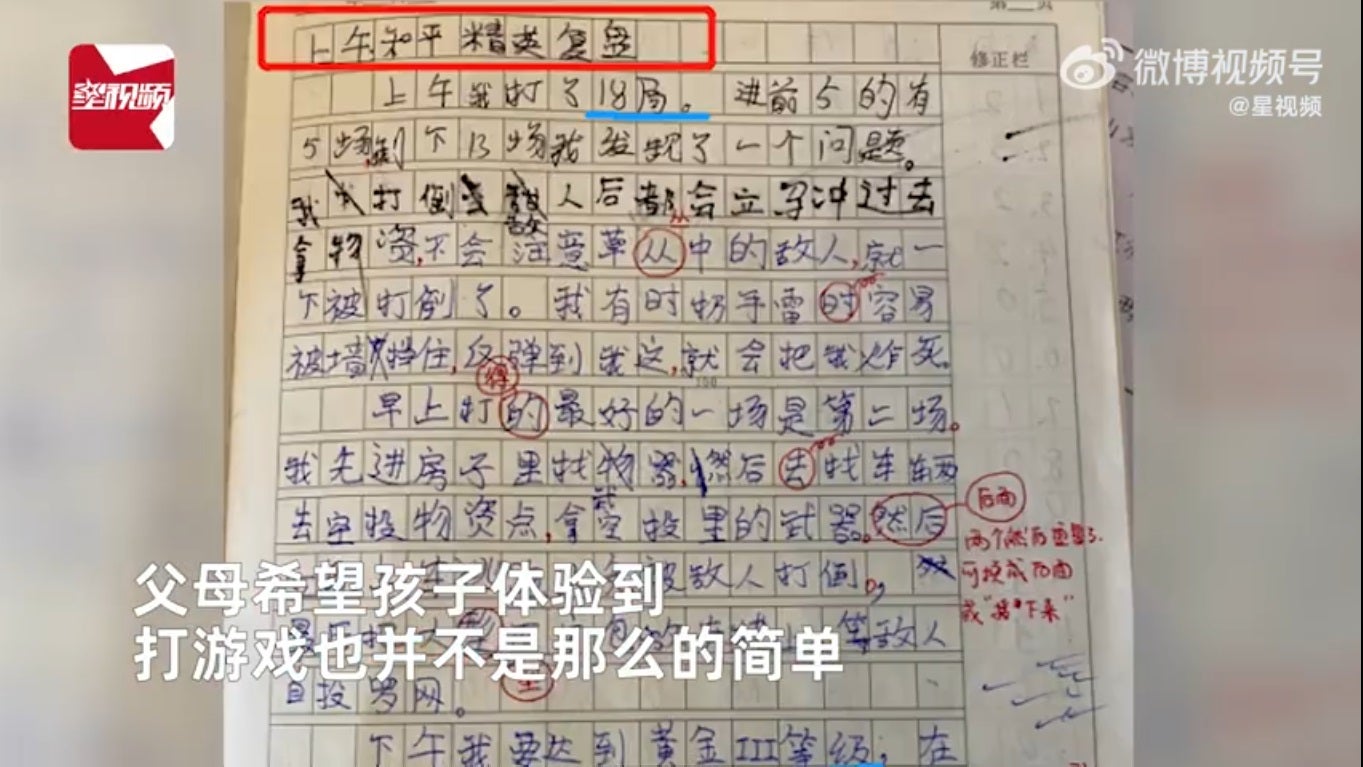 第 页
上午和平精英复盘
修正栏
星视频
微博视频号
@星视频
上午我打了18局。进前5的有
5场,剩下13场我发现了一个问题。
我打倒敌人后都会立马冲过去
拿物资,不会注意草从中的敌人,就一
从
下被打倒了。我有时扔手雷时容易
被墙挡住,反弹到我这,就会把我炸死。
得
早上打的最好的一场是第二场。
我先进房子里找物器,然后去找车辆
去空投物资点,拿空投里的武器。然后
后面
两个然后重复了.
可换成后面
或"接下来"
被敌人打倒,
等敌人
自投罗网。
下午我要达到黄金III等级,在
父母希望孩子体验到
打游戏也并不是那么的简单